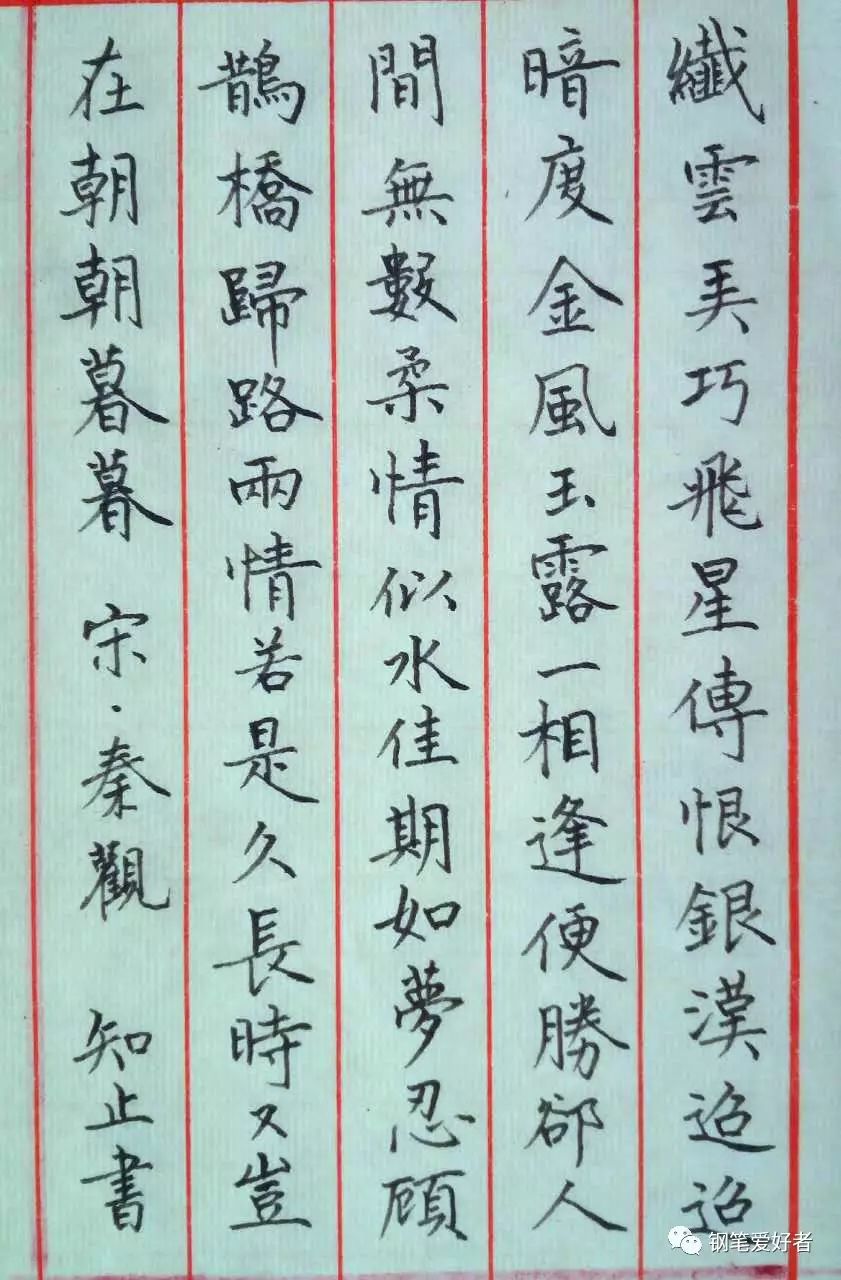 纖雲弄巧飛星傳恨銀漢迢迢
暗度金風玉露一相逢便勝卻人
間無數柔情似水佳期如夢忍顧
鵲橋歸路兩情若是久長時又豈
在朝朝暮暮 宋·秦觀 知止書
钢笔爱好者